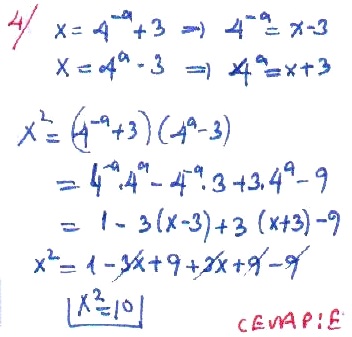 4/ x = 4⁻ᵃ + 3 ⇒ 4⁻ᵃ = x - 3
x = 4ᵃ - 3 ⇒ 4ᵃ = x + 3
x² = (4⁻ᵃ + 3) (4ᵃ - 3)
= 4⁻ᵃ . 4ᵃ - 4⁻ᵃ . 3 + 3 . 4ᵃ - 9
= 1 - 3(x - 3) + 3 (x + 3) - 9
x² = 1 - 3x + 9 + 3x + 9 - 9
x² = 10
CEVAP: E